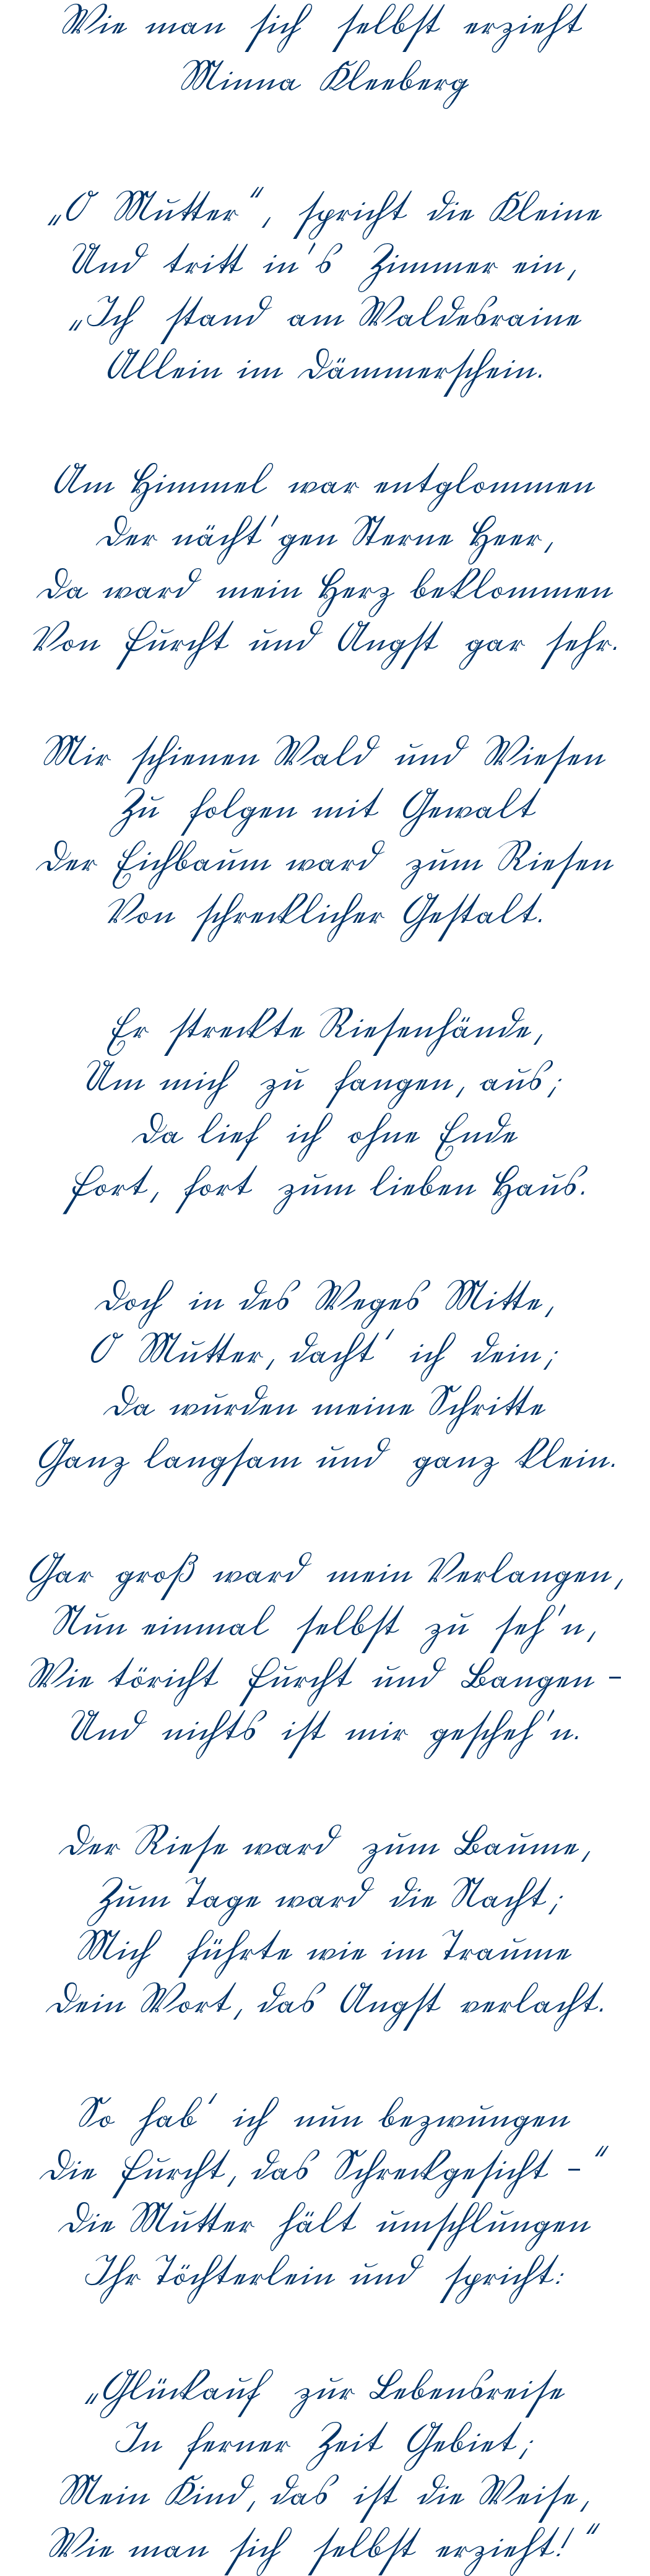 Wie man sich selbst erzieht
Minna Kleeberg
„O Mutter“, spricht die Kleine
Und tritt in's Zimmer ein,
„Ich stand am Waldesraine
Allein im Dämmerschein.
Am Himmel war entglommen
Der nächt'gen Sterne Heer,
Da ward mein Herz beklommen
Von Furcht und Angst gar sehr.
Mir schienen Wald und Wiesen
Zu folgen mit Gewalt
Der Eichbaum ward zum Riesen
Von schrecklicher Gestalt.
Er streckte Riesenhände,
Um mich zu fangen, aus;
Da lief ich ohne Ende
Fort, fort zum lieben Haus.
Doch in des Weges Mitte,
O Mutter, dacht' ich dein;
Da wurden meine Schritte
Ganz langsam und ganz klein.
Gar groß ward mein Verlangen,
Nun einmal selbst zu seh'n,
Wie töricht Furcht und Bangen –
Und nichts ist mir gescheh'n.
Der Riese ward zum Baume,
Zum Tage ward die Nacht;
Mich führte wie im Traume
Dein Wort, das Angst verlacht.
So hab' ich nun bezwungen
Die Furcht, das Schreckgesicht –“
Die Mutter hält umschlungen
Ihr Töchterlein und spricht:
„Glückauf zur Lebensreise
In ferner Zeit Gebiet;
Mein Kind, das ist die Weise,
Wie man sich selbst erzieht!“